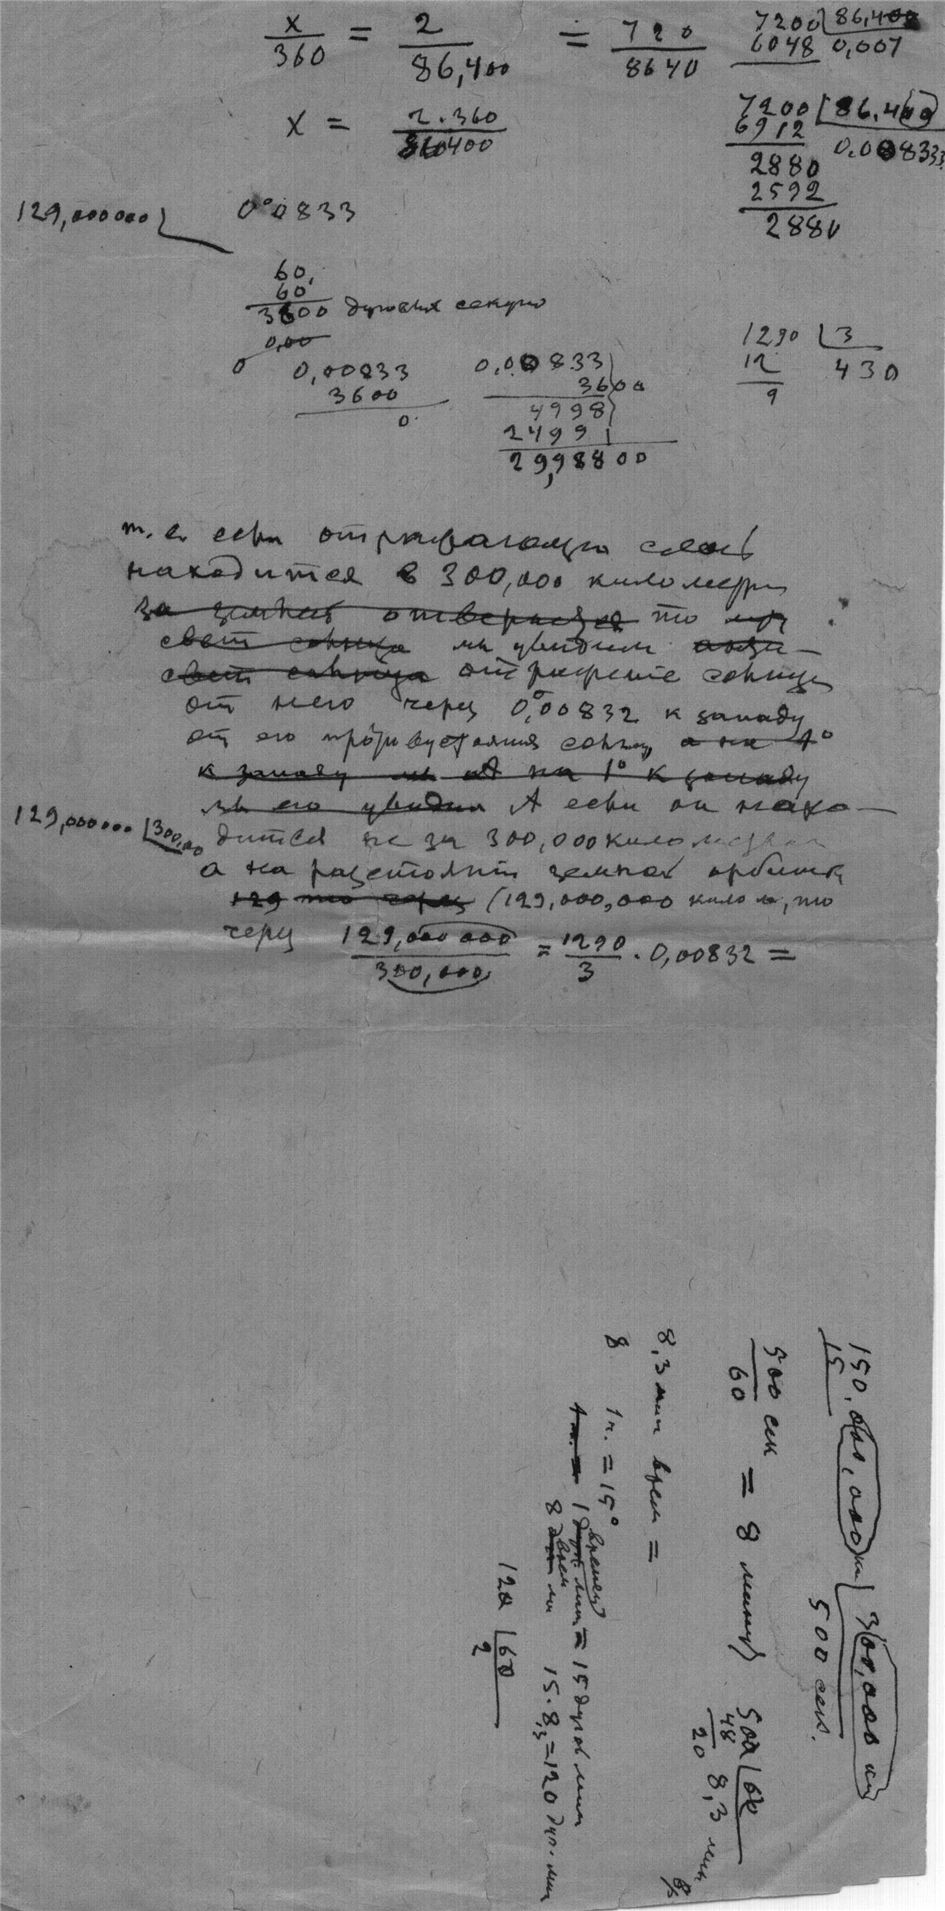 x/360 = 2/86,400 = 720/8640
7200 | 86,400
6048 0,007
x = 2.360/86400
7200 | 86.400
6912 0.008333
2880
2592
2880
129,000000
0°0833
60,
60
3600 дуговых секунд
0,00
0
0,00833
3600
0.
0,00833
3600
4998
2499
29,98800
1290 | 3
12 430
9
т. е. если отражающий слой
находится в 300,000 километр
за землей то
свет солнца мы увидим
свет солнца отражение солнца
от него через 0,°00832 к западу
от его противустояния солнцу, а на 1°
к западу на 1° к западу
мы его увидим А если он нахо-
129,000000 | 300,00
дится не за 300,000 километр
а на расстоянии земной орбиты
129 то через (129,000,000 килом, то
через 129,000000/300,000 = 1290/3 . 0,00832 =
150.000,000 км | 300,000 км
15 500 сек.
500 сек/60 = 8 минут
500 | 60
48 8,3 мин
20
8,3 мин врем =
8
1 ч. = 15°
1 времен мин = 15 дугов мин
8 врем м 15.8,3 = 120 дуг. мин
120 | 60
2